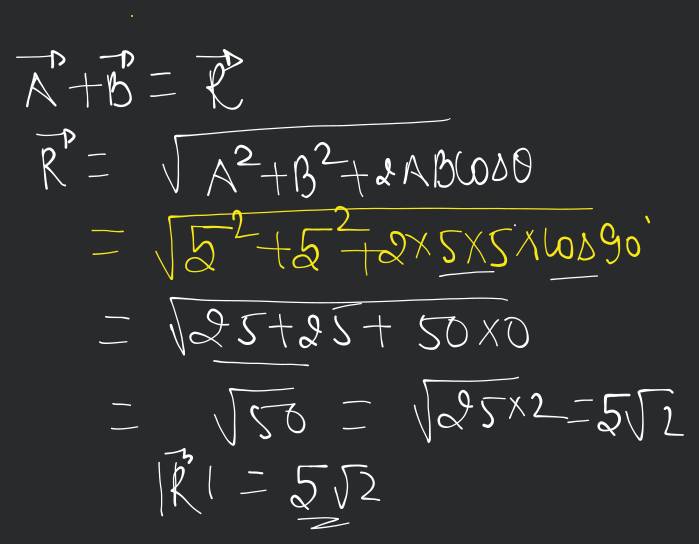 A⃗ + B⃗ = R⃗
R⃗ = √A² + B² + 2ABCOSθ
= √5² + 5² + 2 × 5 × 5 × cos 90°
= √25 + 25 + 50 × 0
= √50 = √25 × 2 = 5√2
|R⃗| = 5√2